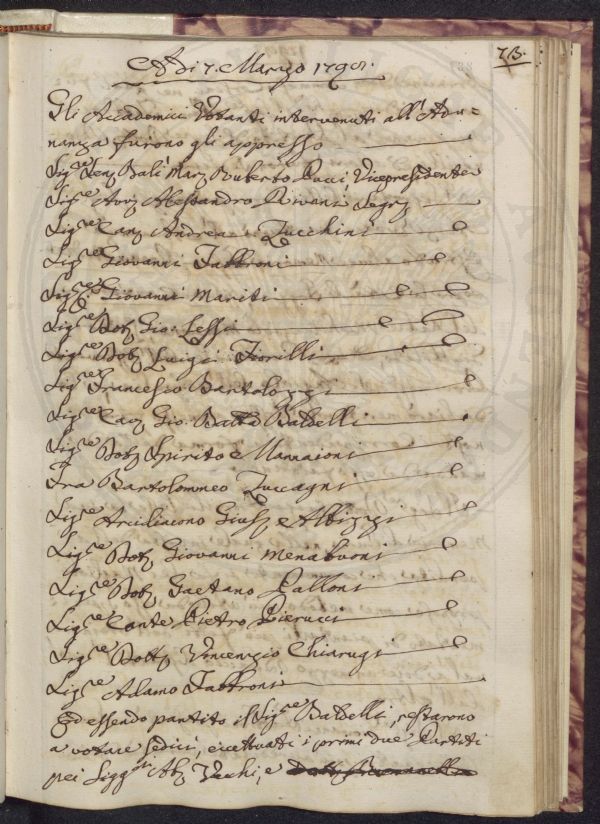 73.
Adi 7. Marzo 1798.
Gli Accademici Votanti intervenuti all'Adu=
nanza furono gli appresso
Sig.re Ten. Balì Marz Ruberto Pucci, Vicepresidente
Sig.re Avv. Alessandro Rivani Segr.
Sig.re Can. Andrea Zucchini
Sig.re Giovanni Fabbroni
Sig.re Giovanni Mariti
Sig.re Dott. Gio: Lessi
Sig.re Dott. Luigi Fiorilli
Sig.re Francesco Bartolozzi
Sig.re Cav. Gio. Batta Baldelli
Sig.re Dott. Spirito Mannaioni
Fra Bartolommeo Zuccagni
Sig.re Arcidiacono Gius. Albizzi
Sig.re Dott. Giovanni Menabuoni
Sig.re Dott. Gaetano Palloni
Sig.re Conte Pietro Pierucci
Sig.re Dott. Vincenzio Chiarugi
Sig.re Adamo Fabbroni
Ed essendo partito il Sig.re Baldelli, restarono
a votare sedici, eccettuati i primi due Partiti
pei Sigg.ri Ab. Vecchi, e